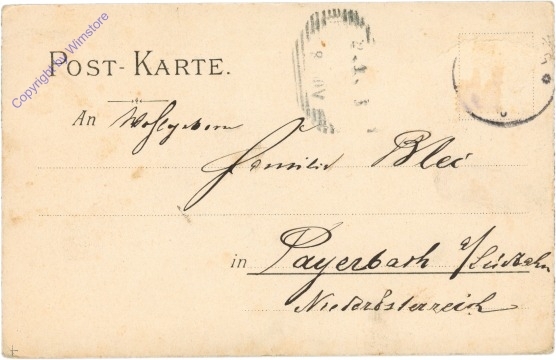 Copyright by Wimstore
POST-KARTE.
An Wohlgeboren
Familie Blei
in Payerbach a/Südbahn
Niederösterreich